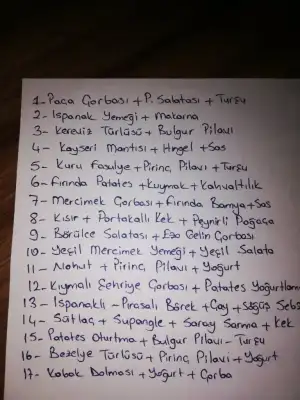 1- Paça Çorbası + P. Salatası + Turşu
2- Ispanak Yemeği + Makarna
3- Kereviz Türlüsü + Bulgur Pilavı
4- Kayseri Mantısı + Hıngel + Sos
5- Kuru Fasulye + Pirinç Pilavı + Turşu
6- Fırında Patates + Kuymak + Kahvaltılık
7- Mercimek Çorbası + Fırında Bamya + Sos
8- Kısır + Portakallı Kek + Peynirli Poğaça
9- Börülce Salatası + Ezo Gelin Çorbası
10- Yeşil Mercimek Yemeği + Yeşil Salata
11- Nohut + Pirinç Pilavı + Yoğurt
12- Kıymalı Şehriye Çorbası + Patates Yoğurtlama
13- Ispanaklı - Pırasalı Börek + Çay + Söğüş Sebz
14- Sütlaç + Supangle + Saray Sarma + Kek
15- Patates Oturtma + Bulgur Pilavı - Turşu
16- Bezelye Türlüsü + Pirinç Pilavı + Yoğurt
17- Kabak Dolması + Yoğurt + Çorba